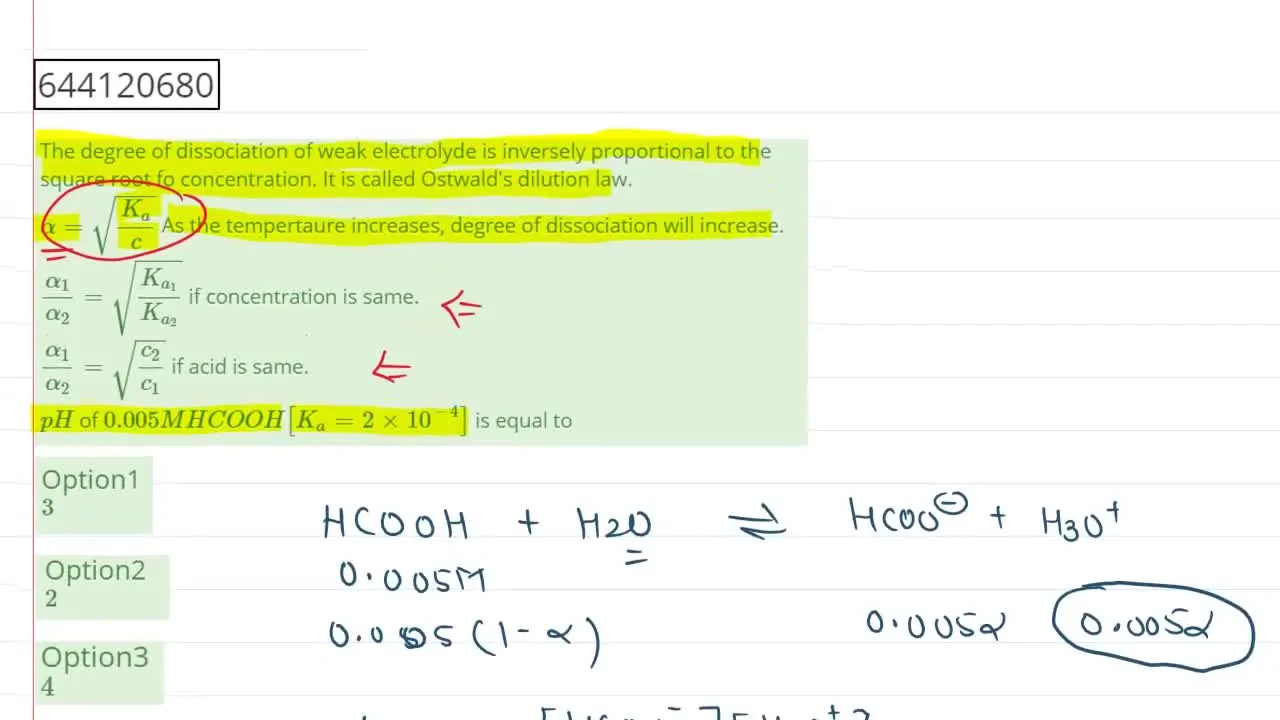 644120680
The degree of dissociation of weak electrolyde is inversely proportional to the
square root fo concentration. It is called Ostwald's dilution law.
α = √(K_a/c) As the tempertaure increases, degree of dissociation will increase.
α₁/α₂ = √(K_a₁/K_a₂) if concentration is same.
α₁/α₂ = √(c₂/c₁) if acid is same.
pH of 0.005MHCOOH [K_a = 2 × 10⁻⁴] is equal to
Option1
3
HCOOH + H2O ⇌ HCOO⊖ + H3O⁺
Option2
2
0.005M
0.005 (1-α) 0.005α 0.005α
Option3
4